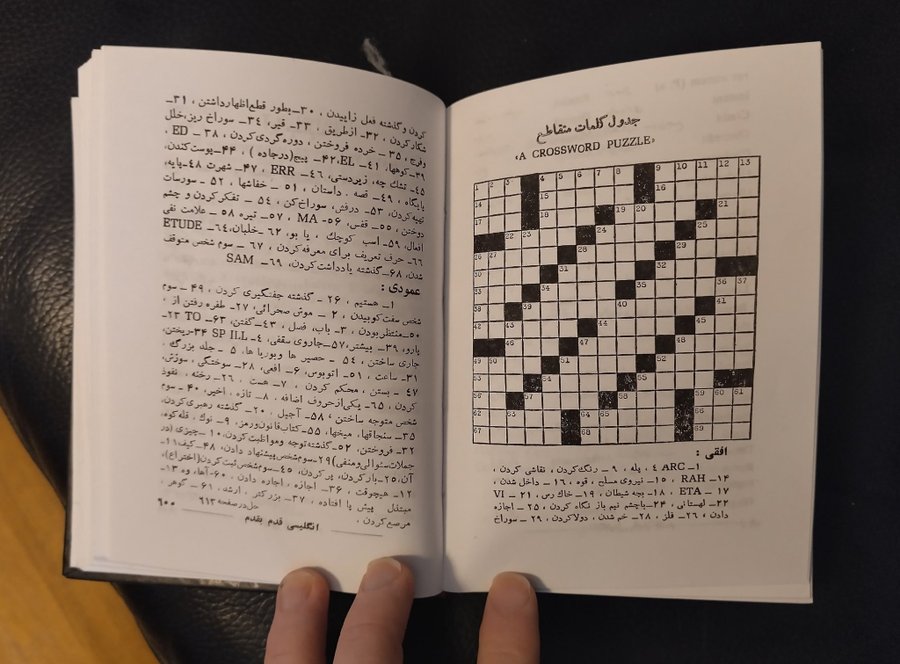 جدول کلمات متقاطع
«A CROSSWORD PUZZLE»
1 2 3 4 5 6 7 8 9 10 11 12 13
14 15 16
17 18 19 20 21
22 23 24 25
26 27 28 29
30 31 32
33 34 35 36 37
38 39 40 41
42 43 44 45
46 47 48
49 50 51 52
53 54 55
56 57 58 59 60 61
62 63 64 65 66
67 68 69
افقی :
۱ــ ARC ۴ ، پله ، ۹ ــ رنگ‌کردن ، نقاشی کردن ،
۱۴ــ RAH ، ۱۵ــ نیروی مسلح ، قوه ، ۱۶ ــ داخل شدن ،
۱۷ ــ ETA ، ۱۸ــ بچه شیطان ، ۱۹ــ خاك رس ، ۲۱ ــ VI
۲۲ــ لهستانی ، ۲۴ــ باچشم نیم باز نگاه کردن ، ۲۵ ــ اجازه
دادن ، ۲۶ــ فلز ، ۲۸ــ خم شدن ، دولاکردن ، ۲۹ ــ سوراخ
کردن وگذشته فعل زاییدن ، ۳۰ــ بطور قطع‌اظهارداشتن ، ۳۱ــ
شکارکردن ، ۳۲ــ ازطریق ، ۳۳ــ قیر، ۳۴ــ سوراخ ریز،خلل
وفرج ، ۳۵ ــ خرده فروختن ، دوره‌گردی‌کردن ، ۳۸ ــ ED ،
۳۹ــ کوهها، ۴۱ــ EL،۴۲ــ پیچ(درجاده) ، ۴۴ــ پوست‌کندن،
۴۵ــ تشك چه، زیردستی، ۴۶ــ ERR ، ۴۷ــ شهرت ۴۸ــ پایه،
پایگاه ، ۴۹ــ قصه . داستان ، ۵۱ ــ خفاشها ، ۵۲ ــ سورسات
تهیه‌کردن، ۵۳ــ درفش، سوراخ‌کن ، ۵۴ ــ تفکرکردن و چشم
دوختن ، ۵۵ــ قفس، ۵۶ــ MA ، ۵۷ــ تیره ۵۸ ــ علامت نفی
افعال، ۵۹ــ اسب کوچك ، یا بو، ۶۲ــ خلبان،۶۴ــ ETUDE
۶۶ــ حرف تعریف برای معرفه‌کردن ، ۶۷ ــ سوم شخص متوقف
شدن، ۶۸ــ گذشته یادداشت‌کردن، ۶۹ــ SAM
عمودی :
۱ــ هستیم ، ۲۶ ــ گذشته جفتگیری کردن ، ۴۹ ــ سوم
شخص سفت‌کوبیدن ، ۲ ــ موش صحرائی، ۲۷ــ طفره رفتن از ،
۵۰ــ منتظربودن ، ۳ــ باب، فصل ، ۴۳ــ گفتن، ۶۳ــ TO ۲۳ــ
پارو، ۳۹ــ بیشتر،۵۷ــ جاروی سقفی، ۴ــ SP ILL ۳۴ــ ریختن،
جاری ساختن ، ۵۴ ــ حصیر ها وبوریا ها، ۵ ــ جله بزرگ ،
۳۱ــ ساعت ، ۵۱ــ اتوبوس، ۶ــ افعی، ۲۸ــ سوختگی، سوزش،
۴۷ ــ بستن ، محکم کردن ، ۷ــ هست ، ۲۶ــ رخته ، نفوذ
کردن ، ۶۵ــ یکی‌ازحروف اضافه ، ۸ــ تازه . اخیر، ۴۰ ــ سوم
شخص متوجه ساختن ، ۵۸ــ آجیل . ۲۰ــ گذشته رهبری‌کردن،
۳۵ــ سنجاقها، میخها، ۵۵ــ کتاب‌قانون‌ورمز، ۹ــ نوك، قله‌کوه،
۳۲ــ فروختن، ۵۲ــ گذشته‌توجه ومواظبت‌کردن، ۱۰ــ چیزی (در
جملات‌سئوالی‌ومنفی) ۲۹ــ سوم‌شخص‌پیشنهاد دادن، ۴۸ــ کیف۱۱ــ
آن، ۲۵ــ بارکردن، پر کردن، ۴۵ــ سوم‌شخص‌ثبت‌کردن(اختراع)،
۱۲ــ هیچوقت ، ۳۶ــ اجازه ، اجازه دادن . ۶۰ــ آها، وه ۱۳ــ
مبتذل پیش پا افتاده ، ۳۷ــ بزرگتر ، ارشد ، ۶۱ــ گوهر ،
مرصع‌کردن .
حل درصفحه ۶۱۳
انگلیسی قدم بقدم
۶۰۰